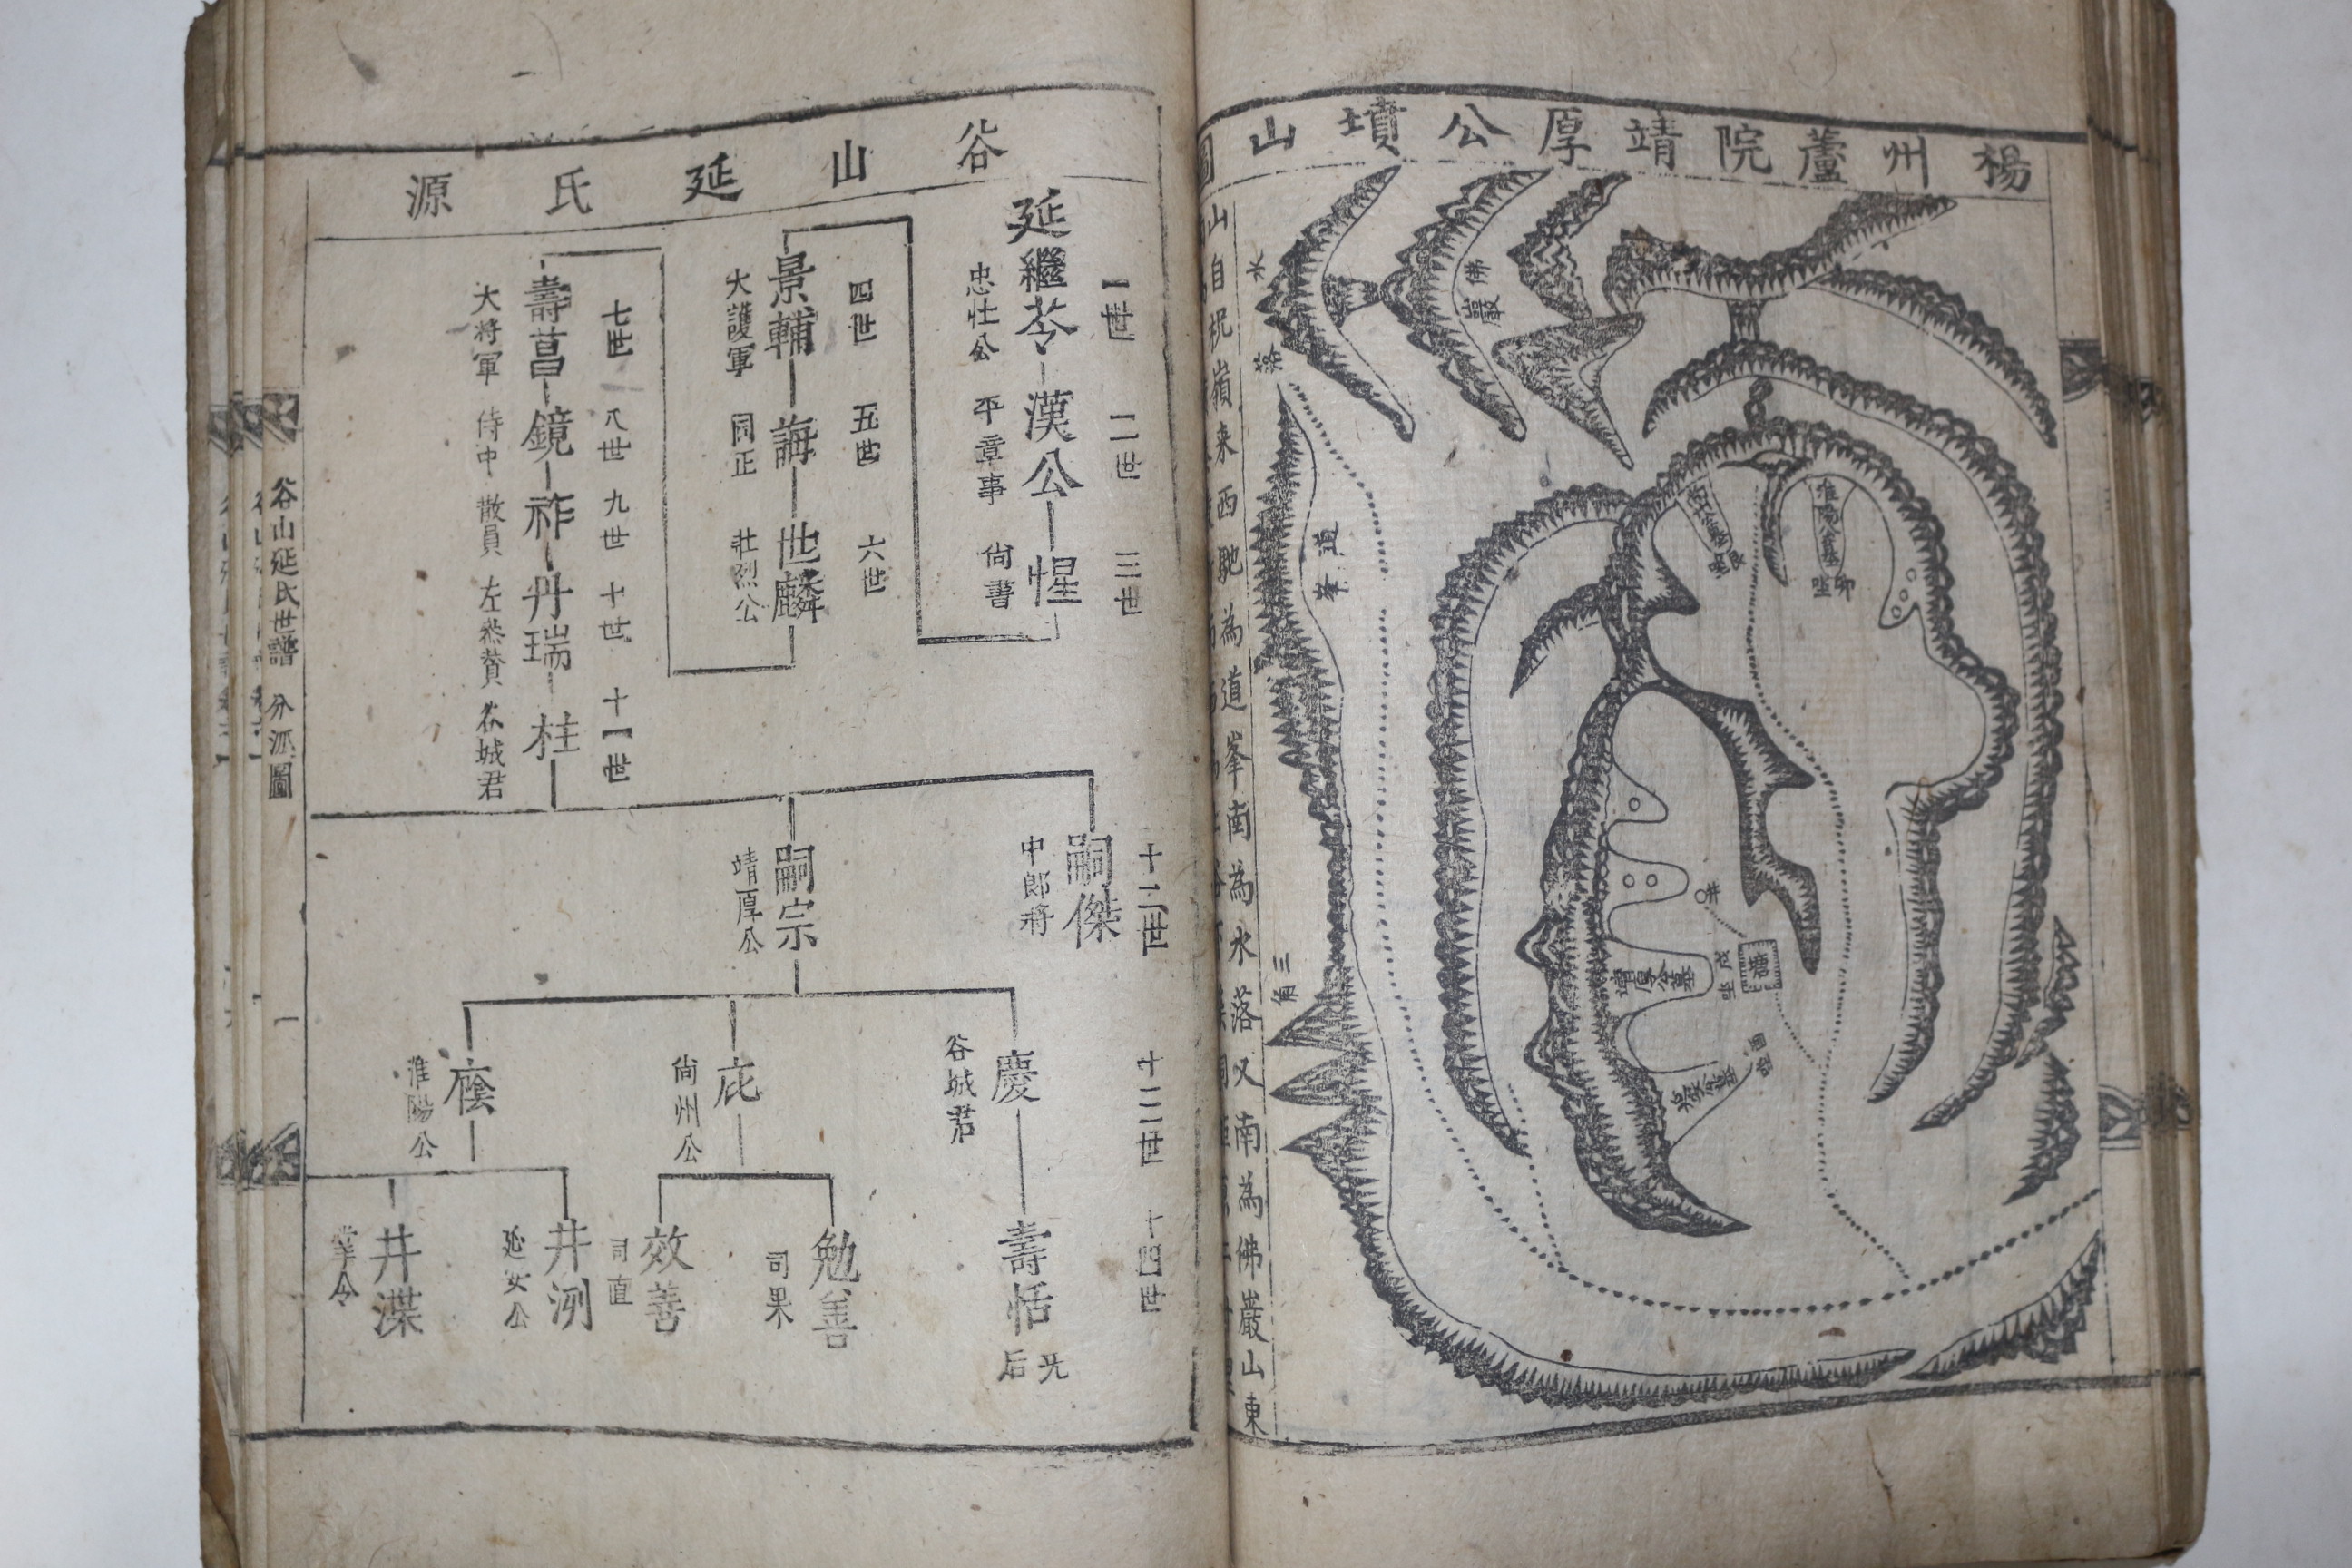 楊州蘆院靖厚公墳山圖
佛巖
水落
道峯
三角
淮陽公墓
卯坐
艮坐
井
塘
戌坐
靖厚公墓
酉坐
山自
嶺来西馳為道峯南為水落又南為佛巖山東
谷山延氏源
一世
二世
三世
延繼苓
漢公
惺
忠壮公
平章事
尙書
四世
五世
六世
景輔
誨
世麟
大護軍
同正
壮烈公
七世
八世
九世
十世
十一世
壽菖
鏡
祚
丹瑞
柱
大將軍
侍中
散員
左叅賛
谷城君
十二世
嗣傑
中郎將
嗣宗
靖厚公
十三世
慶
谷城君
庇
尙州公
廕
淮陽公
十四世
壽恬
无后
勉善
司果
效善
司直
井洌
延安公
井渫
谷山延氏世譜
分派圖
一